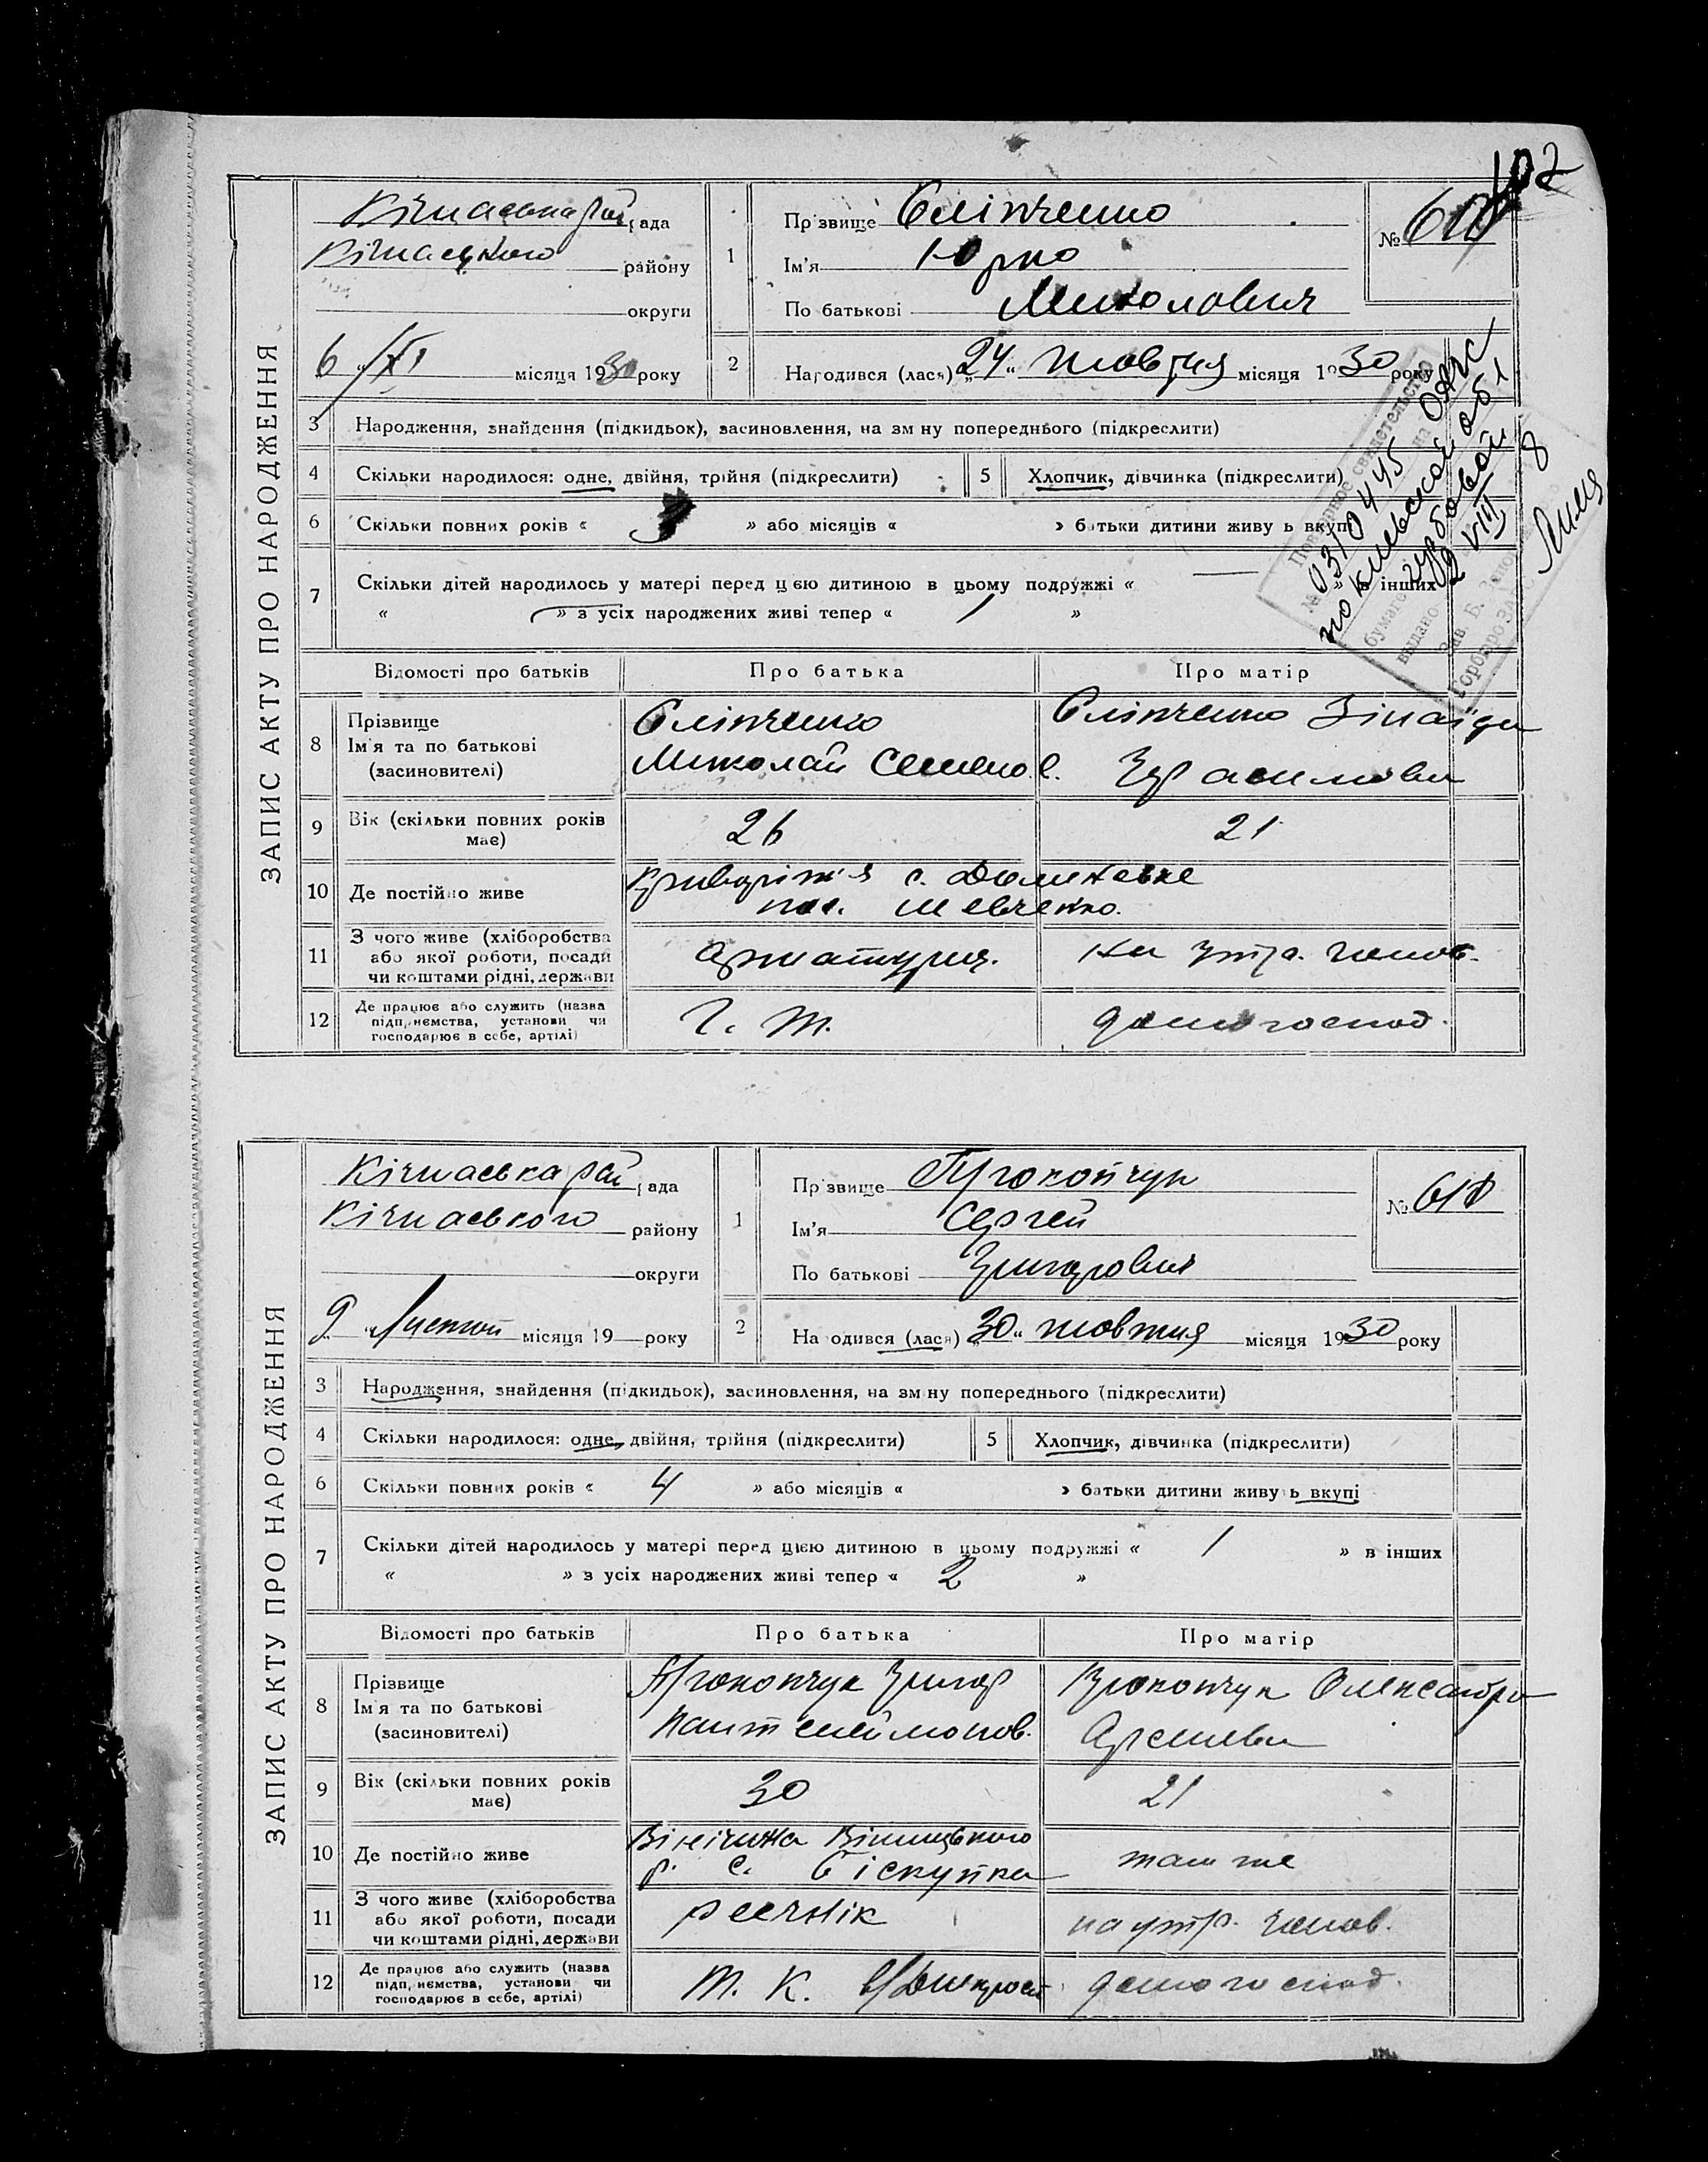 102
Кічкаська рай рада
Кічкаського району
округи
6 / XI місяця 1930 року
1
Прізвище Єліпченко
Ім'я Юрко
По батькові Миколович
№
2
Народився (лася) „24“ жовтня місяця 1930 року
ЗАПИС АКТУ ПРО НАРОДЖЕННЯ
3 Народження, знайдення (підкидьок), засиновлення, на зміну попереднього (підкреслити)
4 Скільки народилося: одне, двійня, трійня (підкреслити)
5 Хлопчик, дівчинка (підкреслити)
6 Скільки повних років « » або місяців « » батьки дитини живуть вкупі
7 Скільки дітей народилось у матері перед цією дитиною в цьому подружжі « — » в інших
« — » з усіх народжених живі тепер « 1 »
Повторное свидетельство
№ 0310445 на
по киевской обл
бумаге гербовой
выдано 2 VIII 8
Зав. Б.
Горбюро ЗАГС
Відомості про батьків Про батька Про матір
8 Прізвище
Ім'я та по батькові
(засиновителі)
Єліпченко
Миколай Семенов.
Єліпченко Зінаїда
Герасимовна
9 Вік (скільки повних років має) 26 21
10 Де постійно живе
Криворіжя с.
пос. Шевченко.
11 З чого живе (хліборобства
або якої роботи, посади
чи коштами рідні, держави
арматурщ. на утр. чолов.
12 Де працює або служить (назва
підприємства, установи чи
господарює в себе, артілі)
Г. Т. домогоспод.
Кічкаська рай рада
Кічкаського району
округи
9 „Листоп місяця 19 року
1
Прізвище Прокопчук
Ім'я Сергей
По батькові Григорович
№ 618
2
Народився (лася) „30“ жовтня місяця 1930 року
ЗАПИС АКТУ ПРО НАРОДЖЕННЯ
3 Народження, знайдення (підкидьок), засиновлення, на зміну попереднього (підкреслити)
4 Скільки народилося: одне, двійня, трійня (підкреслити)
5 Хлопчик, дівчинка (підкреслити)
6 Скільки повних років « 4 » або місяців « » батьки дитини живуть вкупі
7 Скільки дітей народилось у матері перед цією дитиною в цьому подружжі « 1 » в інших
« » з усіх народжених живі тепер « 2 »
Відомості про батьків Про батька Про матір
8 Прізвище
Ім'я та по батькові
(засиновителі)
Прокопчук Григор
Пантелеймонов.
Прокопчук Олександра
Арсеневна
9 Вік (скільки повних років має) 30 21
10 Де постійно живе
Вінічина Вінницького
р. с. Біскупка
там же
11 З чого живе (хліборобства
або якої роботи, посади
чи коштами рідні, держави
на утр. чолов.
12 Де працює або служить (назва
підприємства, установи чи
господарює в себе, артілі)
Т. К. домогоспод.